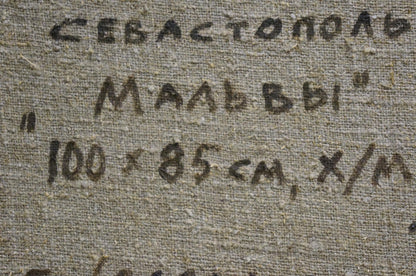 СЕВАСТОПОЛЬ
"МАЛЬВЫ"
100 x 85 см, Х/М